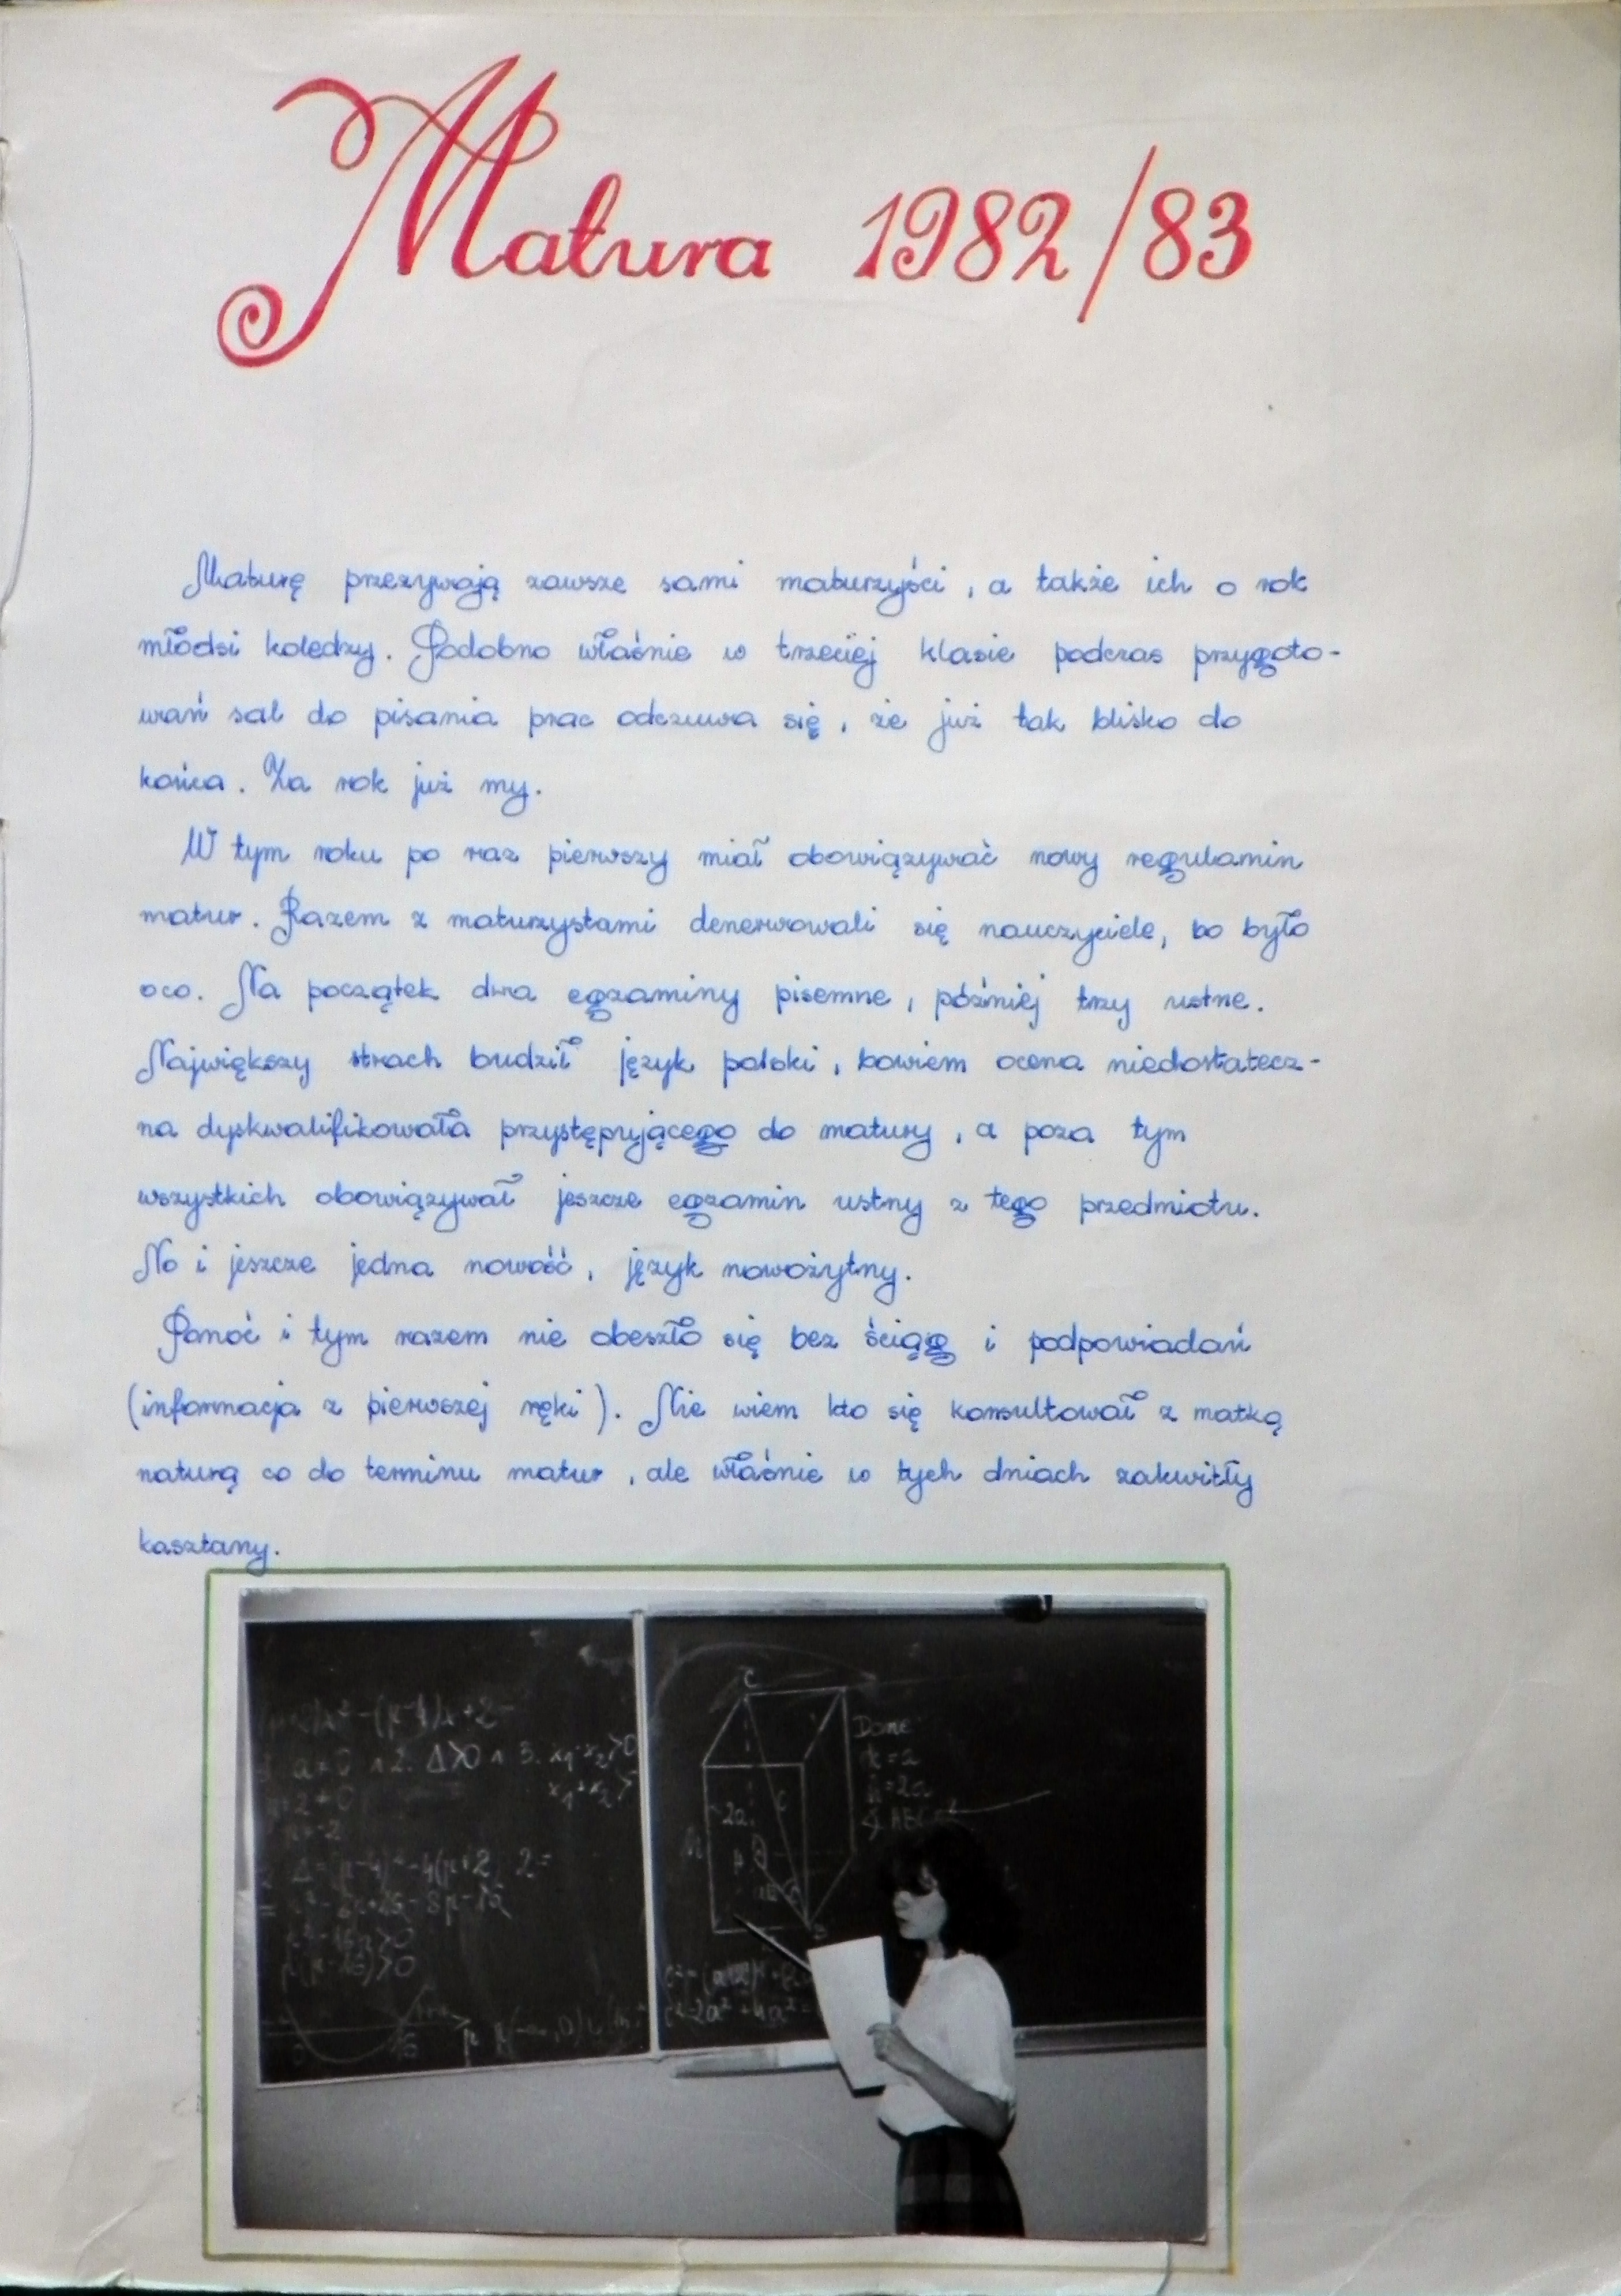 Matura 1982/83
Maturę przezywają zawsze sami maturzyści, a także ich o rok
młodsi koledzy. Podobno właśnie w trzeciej klasie podczas przygoto-
wań sal do pisania prac odczuwa się, że już tak blisko do
końca. Za rok już my.
W tym roku po raz pierwszy miał obowiązywać nowy regulamin
matur. Razem z maturzystami denerwowali się nauczyciele, bo było
oco. Na początek dwa egzaminy pisemne, później trzy ustne.
Największy strach budził język polski, bowiem ocena niedostatecz-
na dyskwalifikowała przystępującego do matury, a poza tym
wszystkich obowiązywał jeszcze egzamin ustny z tego przedmiotu.
No i jeszcze jedna nowość, język nowożytny.
Ponoć i tym razem nie obeszło się bez ściąg i podpowiadań
(informacja z pierwszej ręki). Nie wiem kto się konsultował z matką
naturą co do terminu matur, ale właśnie w tych dniach zakwitły
kasztany.
-(p-4)x+2
a=0 ∧ 2. Δ>0 ∧ 3. x₁·x₂>0
x₁+x₂>
Δ=(p-4)²-4(p+2) 2=
p²-16p>0
p(p-16)>0
0 16 p
C
2a
B
Dane
h=2a
c²=2a²+4a²=